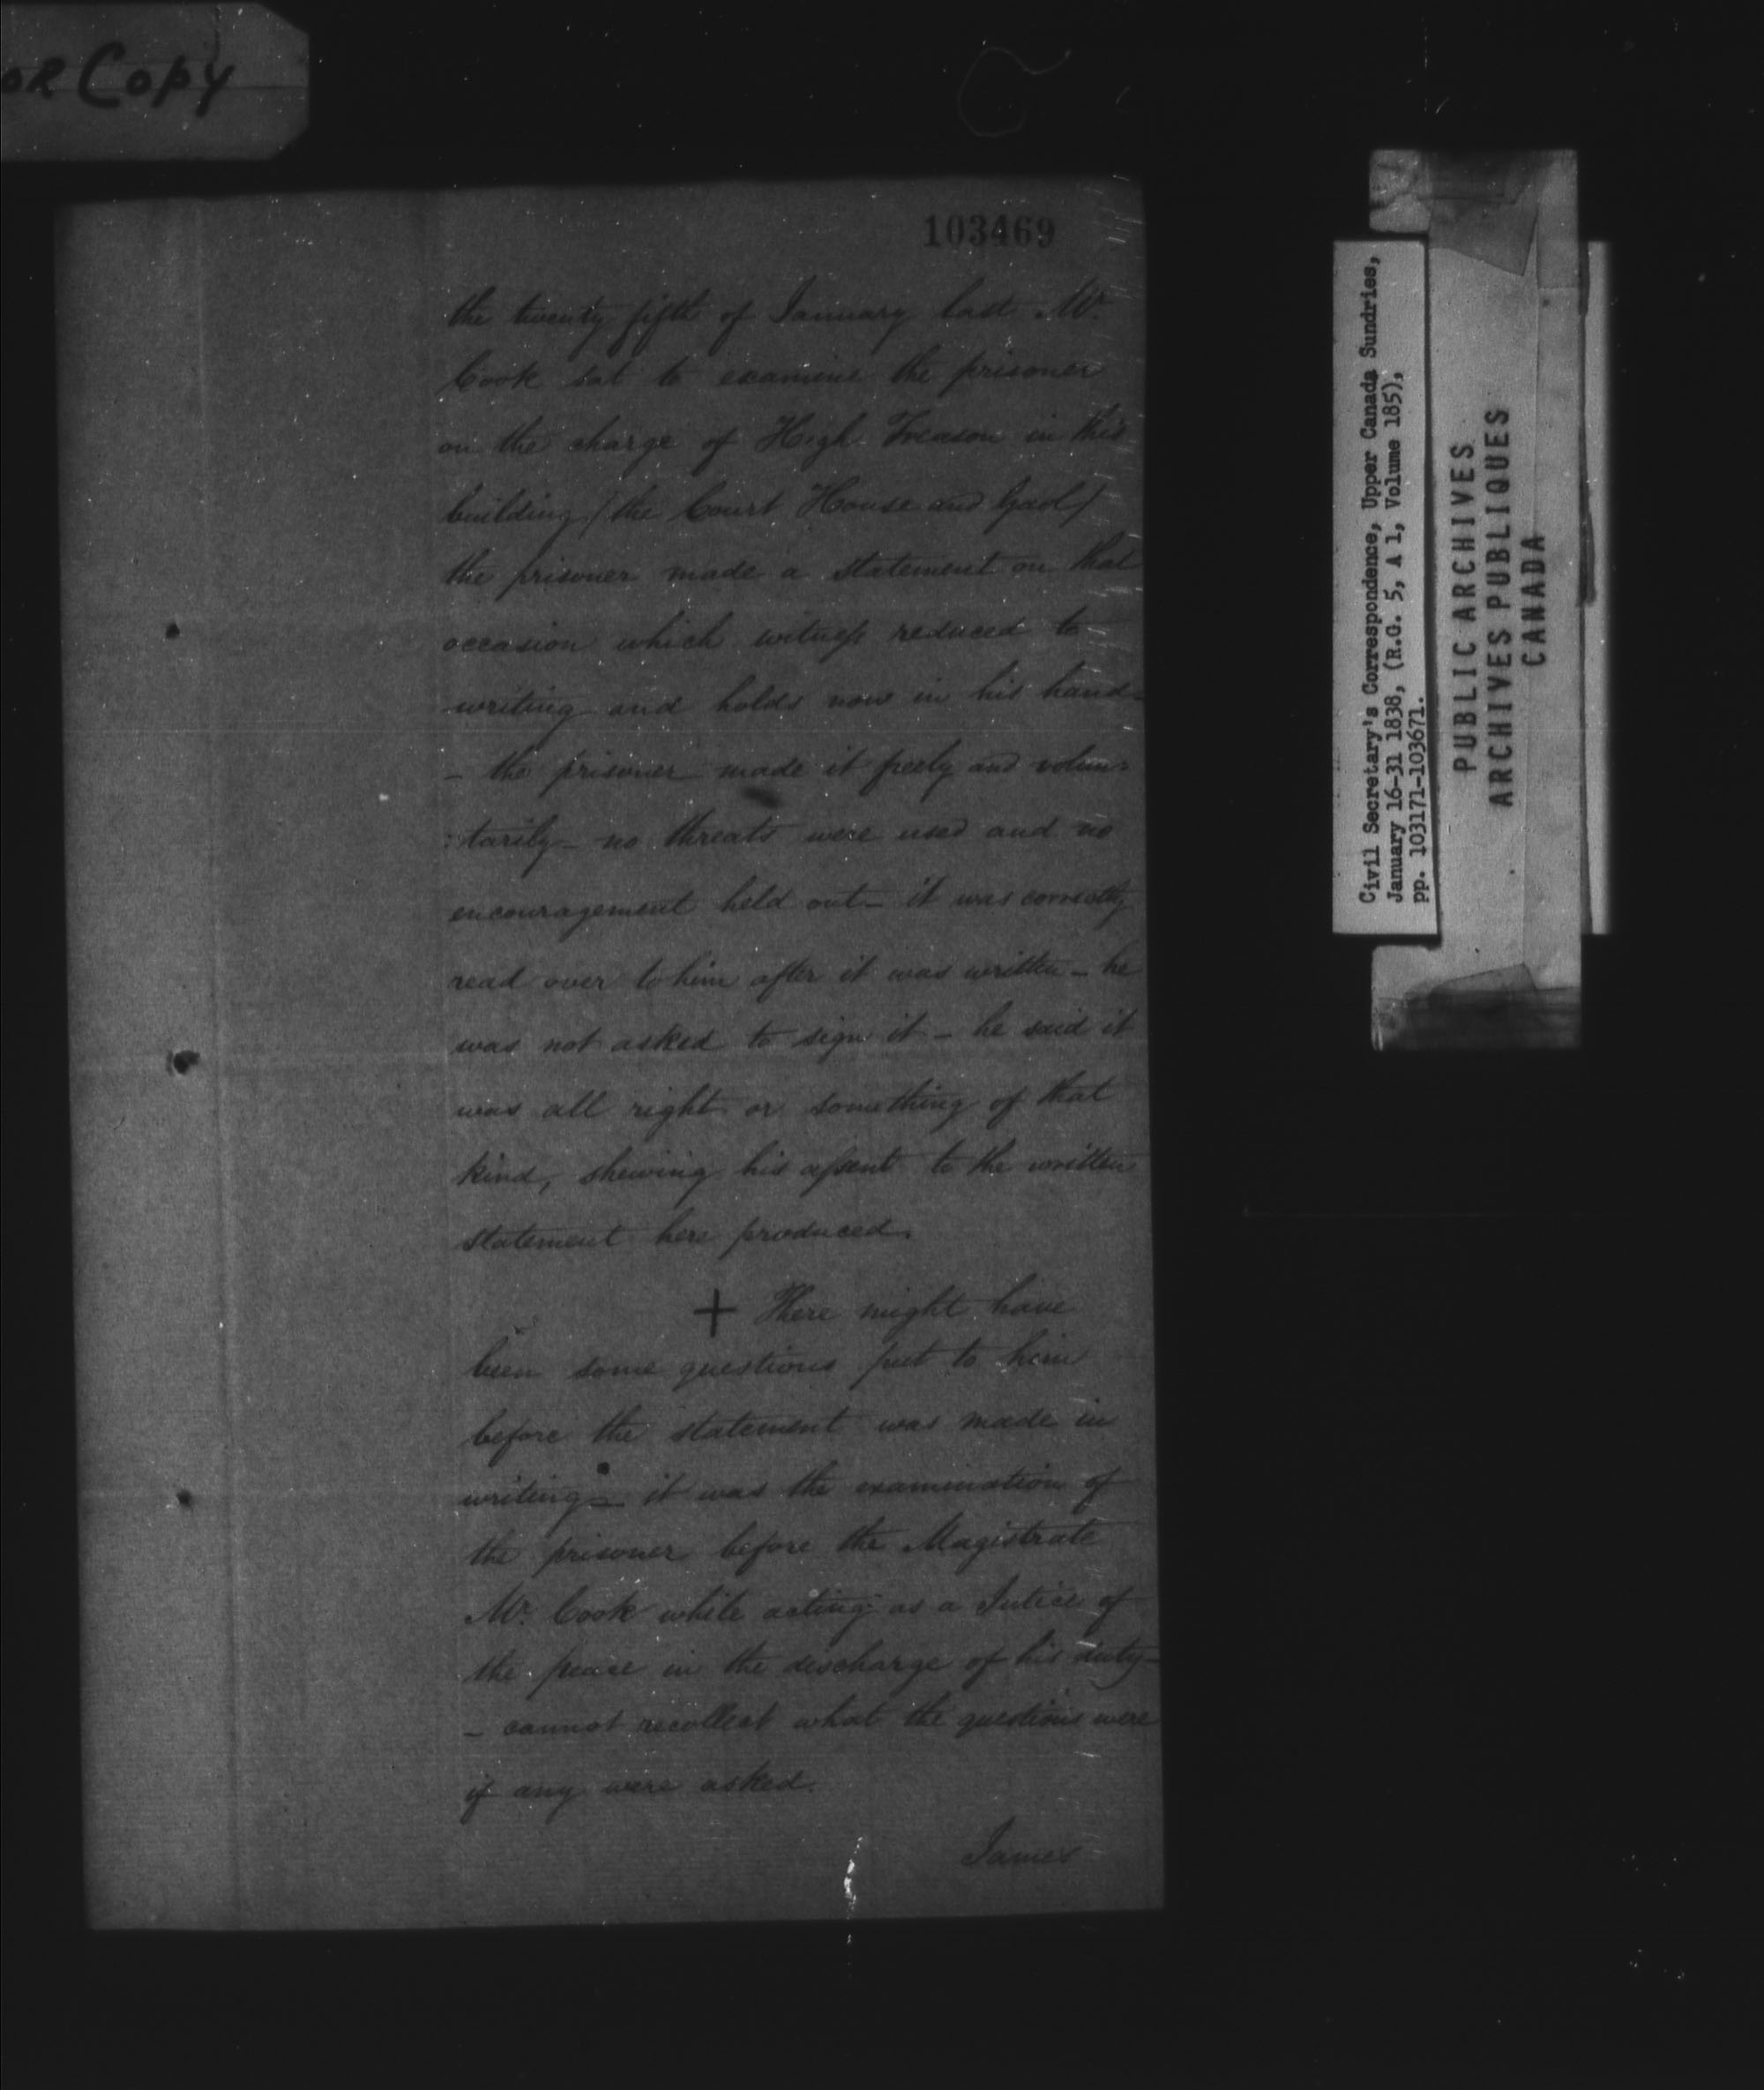 or Copy
103469
the twenty fifth of January last Mr.
Cook sat to examine the prisoner
on the charge of High Treason in this
building / the Court House and Gaol /
the prisoner made a statement on that
occasion which witness reduced to
writing and holds now in his hand-
- the prisoner made it freely and volun:
:tarily - no threats were used and no
encouragement held out - it was correctly
read over to him after it was written - he
was not asked to sign it - he said it
was all right or something of that
kind, shewing his assent to the written
statement here produced.
+ There might have
been some questions put to him
before the statement was made in
writing - it was the examination of
the prisoner before the Magistrate
Mr. Cook while acting as a Jutice of
the peace in the discharge of his duty -
- cannot recollect what the questions were
if any were asked.
James
Civil Secretary's Correspondence, Upper Canada Sundries,
January 16-31 1838, (R.G. 5, A 1, Volume 185),
pp. 103171-103671.
PUBLIC ARCHIVES
ARCHIVES PUBLIQUES
CANADA